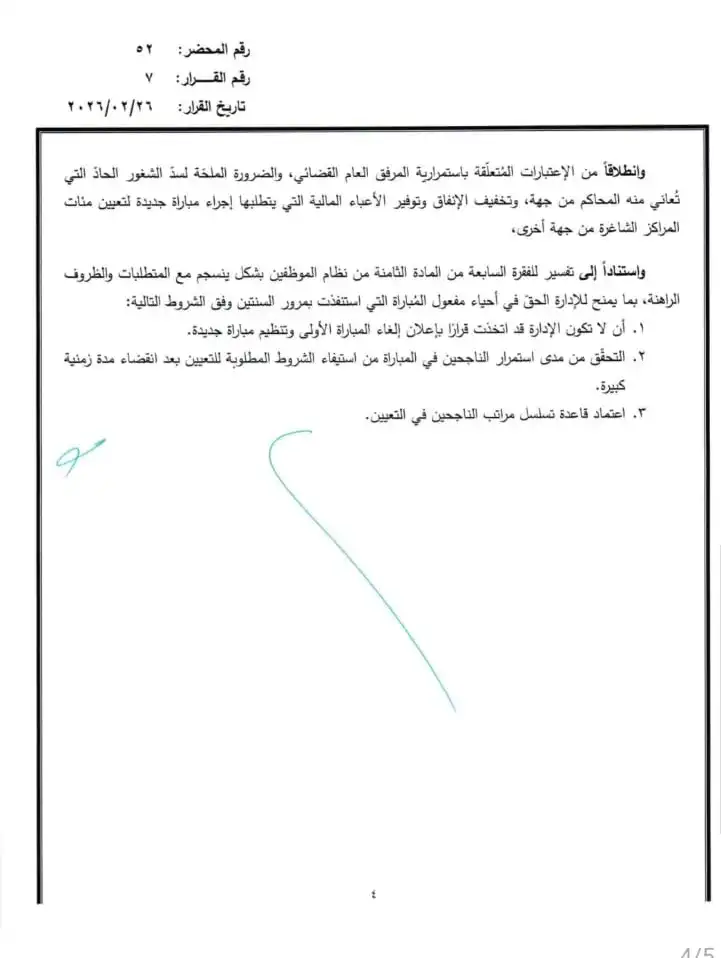 رقم المحضر: ٥٢
رقم القـــرار: ٧
تاريخ القرار: ٢٠٢٦/٠٢/٢٦
وانطلاقاً من الإعتبارات المُتعلّقة باستمرارية المرفق العام القضائي، والضرورة الملحّة لسدّ الشغور الحادّ التي
تُعاني منه المحاكم من جهة، وتخفيف الإنفاق وتوفير الأعباء المالية التي يتطلبها إجراء مباراة جديدة لتعيين مئات
المراكز الشاغرة من جهة أخرى،
واستناداً إلى تفسير للفقرة السابعة من المادة الثامنة من نظام الموظفين بشكل ينسجم مع المتطلبات والظروف
الراهنة، بما يمنح للإدارة الحقّ في أحياء مفعول المُباراة التي استنفذت بمرور السنتين وفق الشروط التالية:
١. أن لا تكون الإدارة قد اتخذت قرارًا بإعلان إلغاء المباراة الأولى وتنظيم مباراة جديدة.
٢. التحقّق من مدى استمرار الناجحين في المباراة من استيفاء الشروط المطلوبة للتعيين بعد انقضاء مدة زمنية
كبيرة.
٣. اعتماد قاعدة تسلسل مراتب الناجحين في التعيين.
٤
4/5